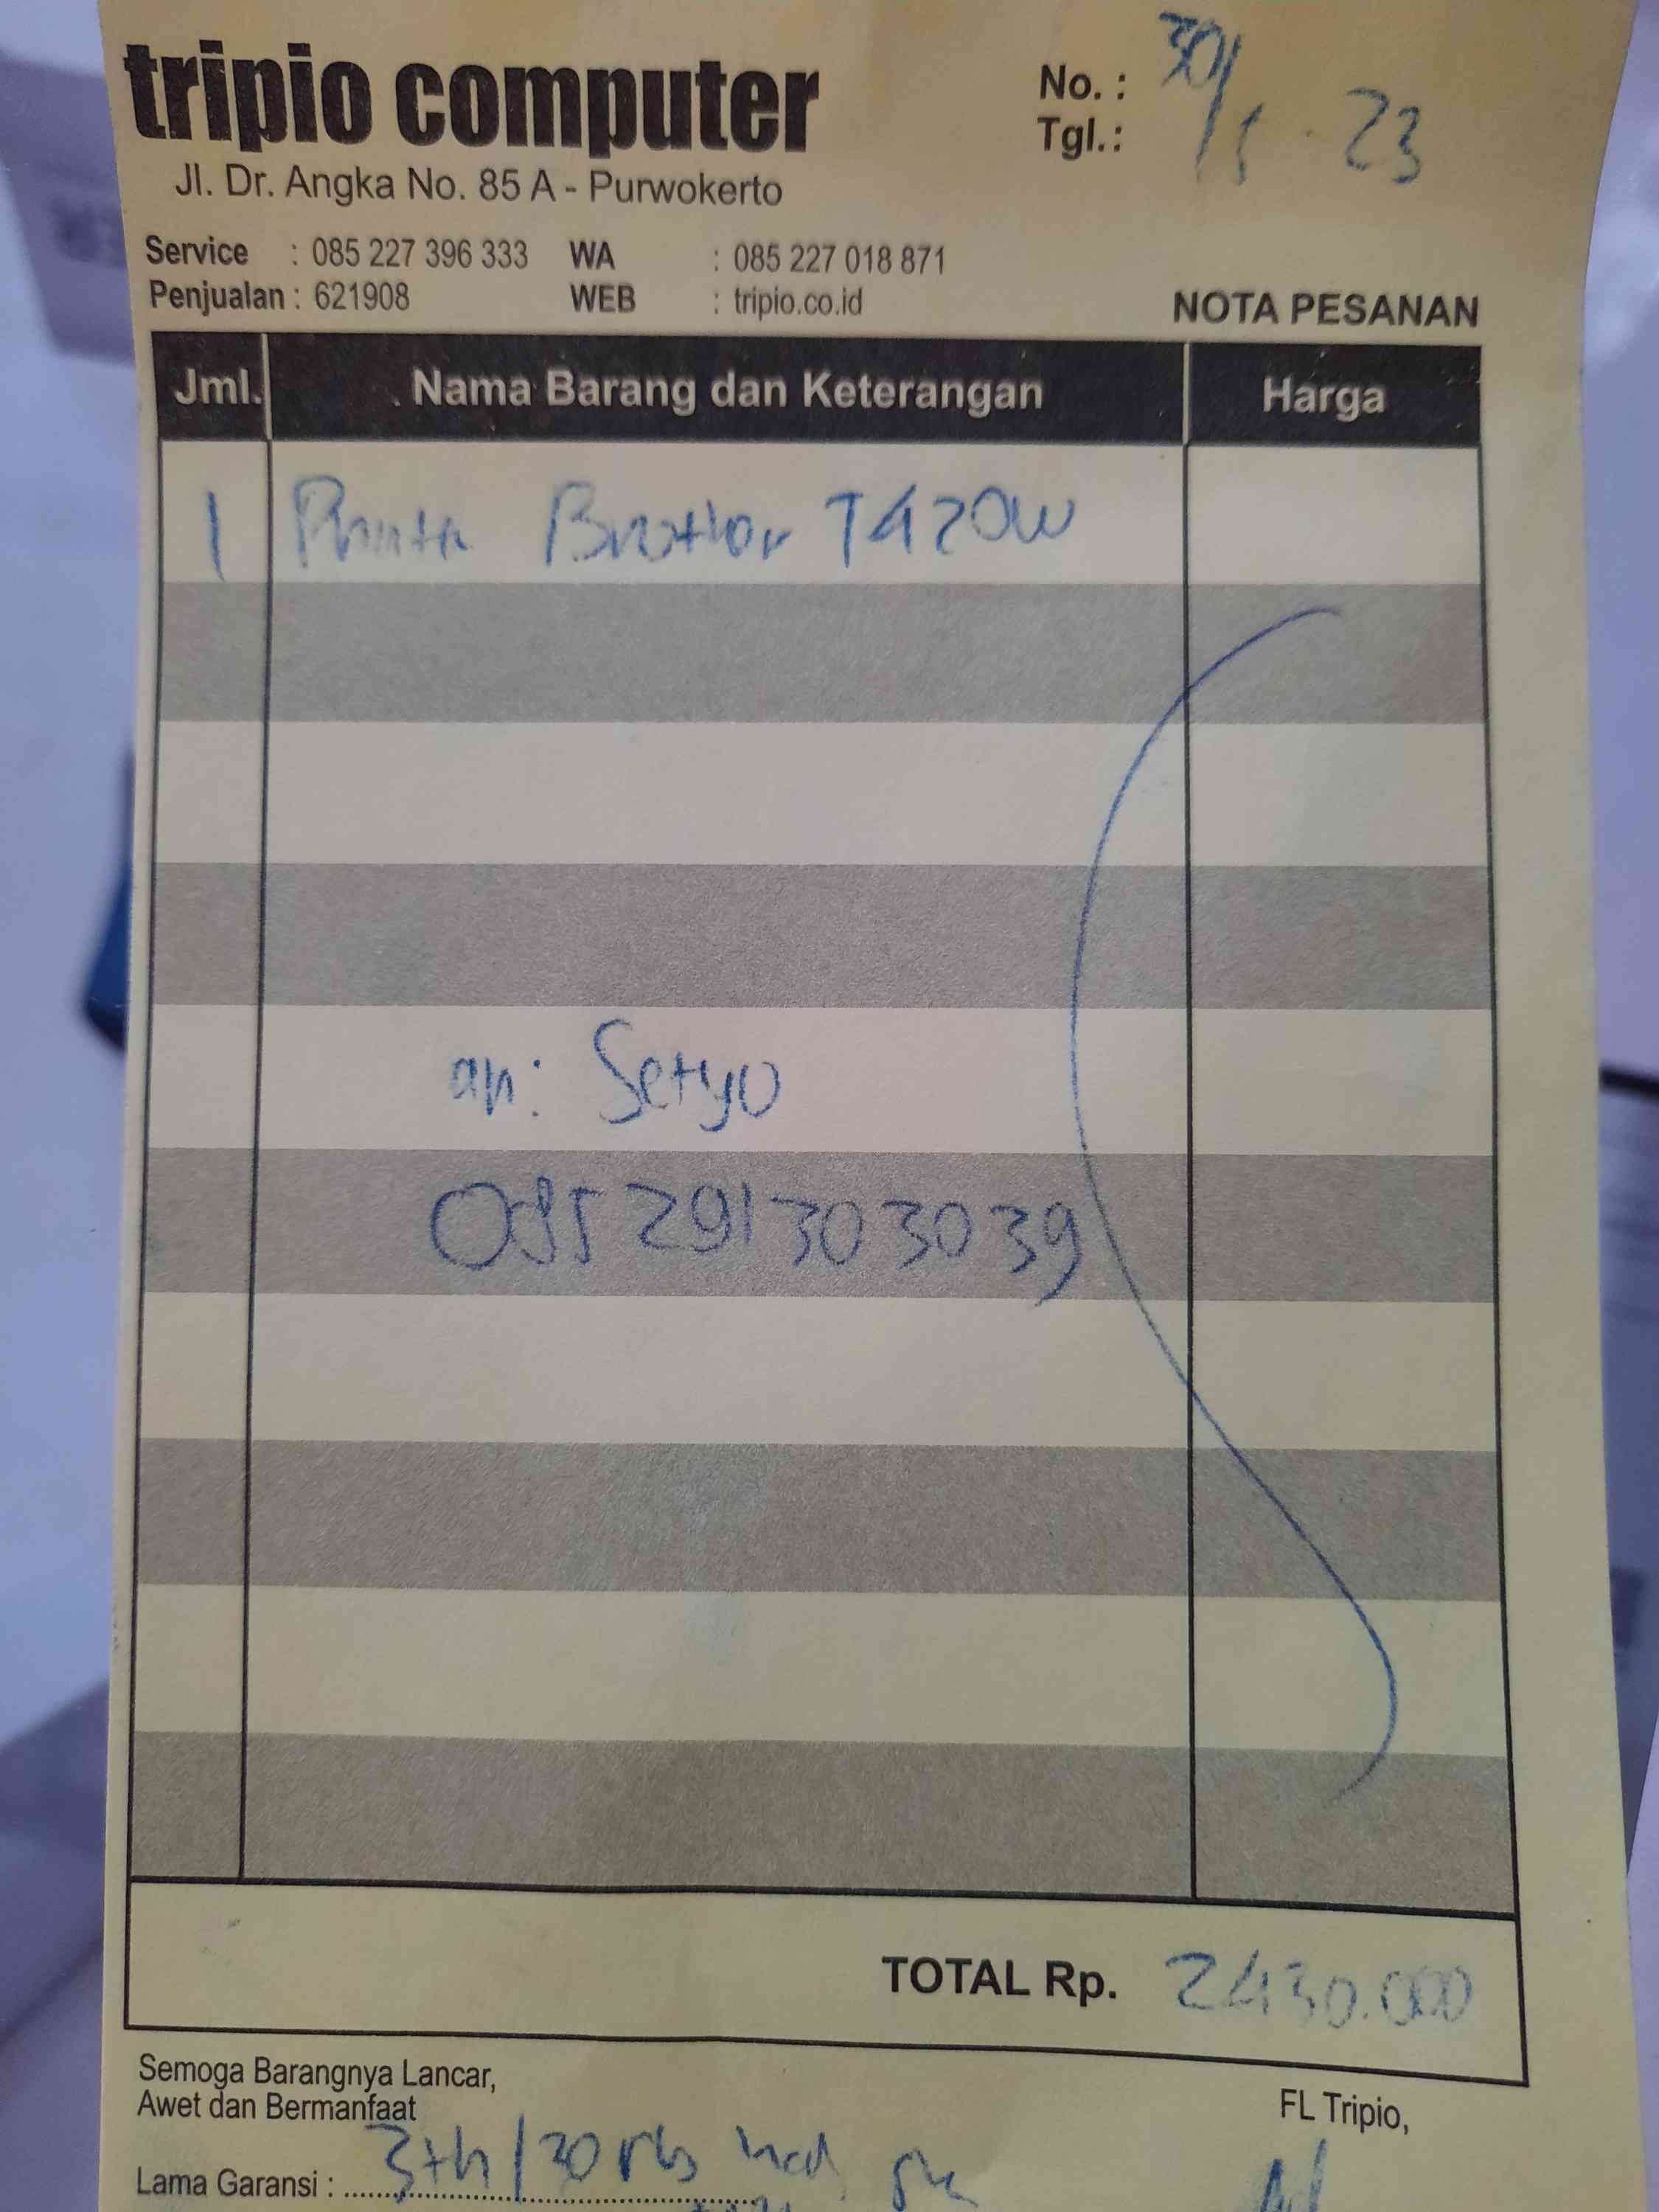 tripio computer
Jl. Dr. Angka No. 85 A - Purwokerto
No. :
Tgl. : 30/1 - 23
Service : 085 227 396 333 WA : 085 227 018 871
Penjualan : 621908 WEB : tripio.co.id
NOTA PESANAN
Jml. Nama Barang dan Keterangan Harga
1 Printer Brother T420W
an: Setyo
085291303039
TOTAL Rp. 2430.000
Semoga Barangnya Lancar,
Awet dan Bermanfaat
FL Tripio,
Lama Garansi : 3th/30rb